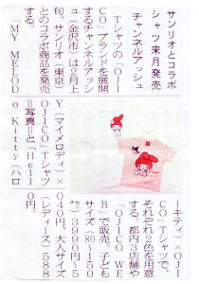 サンリオとコラボ
シャツ来月発売
チャンネルアッシュ
Tシャツの「OJI
CO」ブランドを展開
するチャンネルアッシ
ュ(金沢市)は2月上
旬、サンリオ(東京)
とのコラボ商品を発売
する。
「MY MELOD
Y(マイメロディ)×
OJICO」Tシャツ
=写真=と「Hell
o Kitty(ハロ
ーキティ)×OJI
CO」Tシャツで、
それぞれ2色を用意
する。都内3店舗や
「OJICO WE
B」で販売。子ども
サイズ(80~150
㌢)3990円~5
040円、大人サイズ
(レディース)588
0円。